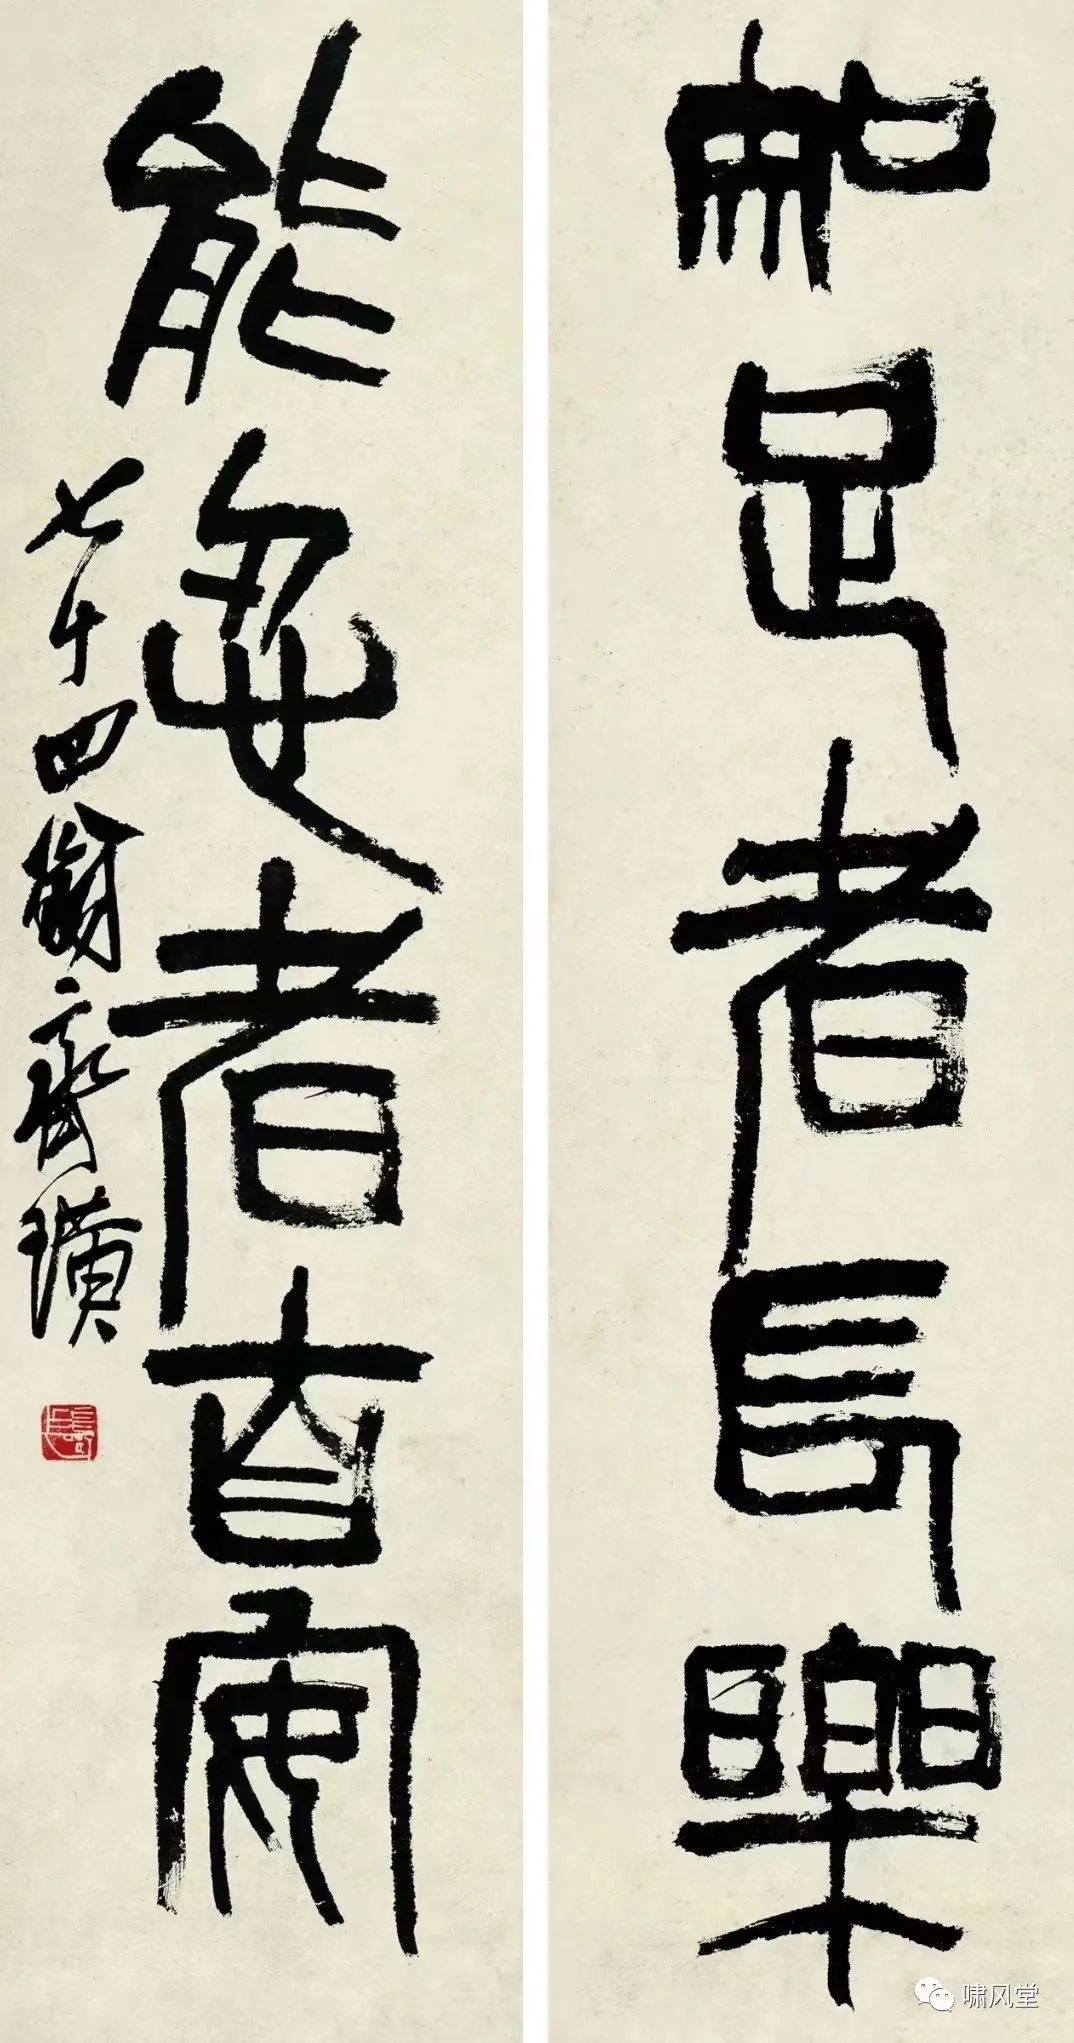 知足者長樂
能忍者自安
七十四翁齊璜
啸风堂